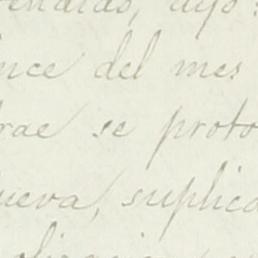 endido, dijo:
nce del mes
rae se proto
ueva, suplica